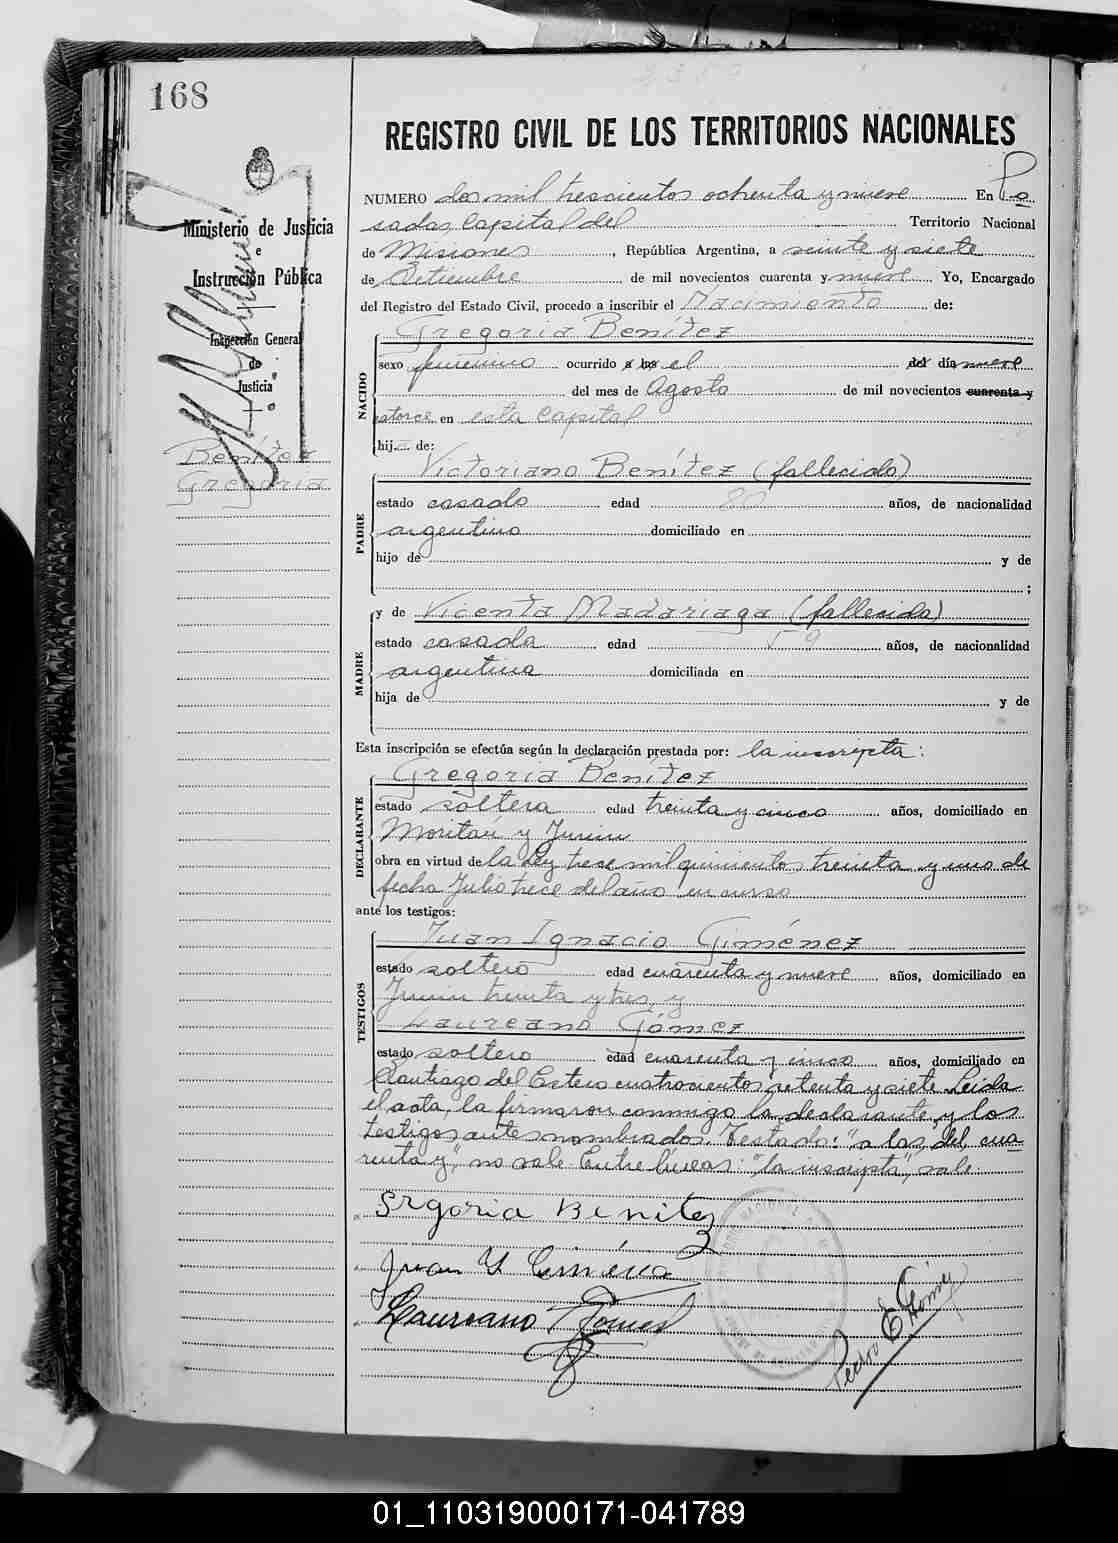 168
REGISTRO CIVIL DE LOS TERRITORIOS NACIONALES
Ministerio de Justicia
e
Instrucción Pública
Inspección General
de
Justicia
Benítez
Gregoria
NUMERO dos mil trescientos ochenta y nueve En Po
sadas, capital del Territorio Nacional
de Misiones, República Argentina, a veinte y siete
de Setiembre de mil novecientos cuarenta y nueve Yo, Encargado
del Registro del Estado Civil, procedo a inscribir el Nacimiento de:
NACIDO
Gregoria Benítez
sexo femenino ocurrido a las el del día nueve
del mes de Agosto de mil novecientos cuarenta y
catorce en esta Capital
hij de:
PADRE
Victoriano Benítez (fallecido)
estado casado edad 80 años, de nacionalidad
argentino domiciliado en
hijo de y de
;
MADRE
y de Vicenta Madariaga (fallecida)
estado casada edad 59 años, de nacionalidad
argentina domiciliada en
hija de y de
Esta inscripción se efectúa según la declaración prestada por: la inscripta:
DECLARANTE
Gregoria Benítez
estado soltera edad treinta y cinco años, domiciliado en
y Junin
obra en virtud de la Ley trece mil quinientos treinta y uno de
fecha Julio trece del año en curso
ante los testigos:
TESTIGOS
Juan Ignacio Giménez
estado soltero edad cuarenta y nueve años, domiciliado en
Junin treinta y tres, y
Laureano Gómez
estado soltero edad cuarenta y cinco años, domiciliado en
Santiago del Estero cuatrocientos setenta y siete Leida
el acta, la firmaron conmigo la declarante y los
testigos antes nombrados. Testado: "a las, del, cua-
renta y", no vale. Entre líneas: "la inscripta", vale.
Srgoria Benitez
Juan Y Giménez
Laureano Gomez
Pedro E. Gómez
01_110319000171-041789